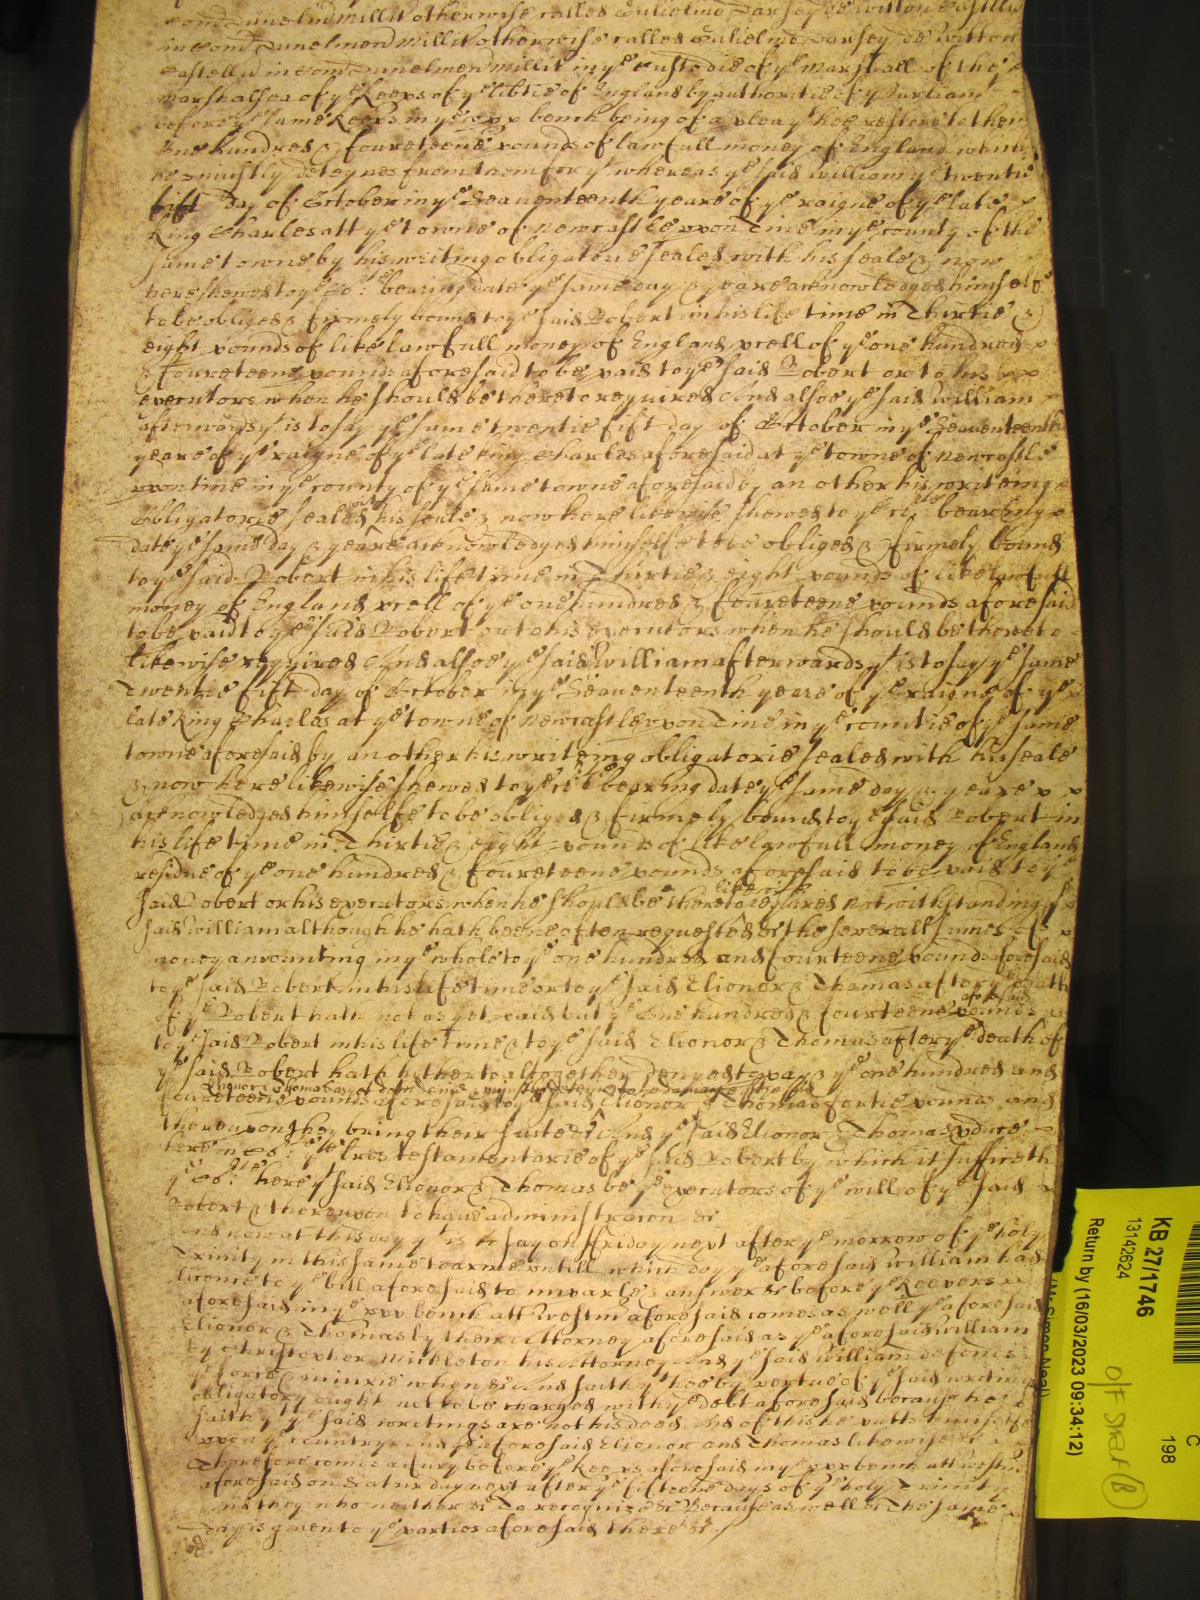 in Com Dunelm Millit otherwise called Gulielmo Darsey de Witton Castell
in Com Dunelmen Millit otherwise called Gulielmo Darsey de Witton
Castell in Com Dunelmen Millit in ye custodie of ye Marshall of the
Marshalsea of ye Keeps of ye libtie of England by authoritie of Parliam
before ye same Keeps in ye upp bench being of a plea yt hee restore to them
One hundred & foureteene pounds of lawfull money of England which
he unjustly deteynes from them for yt whereas ye said William ye twentie
fift day of October in ye Seaventeenth yeare of ye raigne of ye late
King Charles att ye towne of Newcastle upon Tine in ye county of the
same towne by his writing obligatorie sealed with his seale & now
here shewed to ye Co:rte bearing date ye same day & yeare acknowledged himself
to be obliged & firmely bound to ye said Robert in his life time in Thirtie &
eight pounds of like lawfull money of England pcell of ye one hundred
& foureteene pounds aforesaid to be paid to ye said Robert or to his
executors when he should be thereto required And alsoe ye said William
afterwards yt is to say ye same twentie fift day of October in ye Seaventeenth
yeare of ye raigne of ye late king Charles aforesaid at ye towne of Newcastle
upon tine in ye county of ye same towne aforesaid by an other his writeing
obligatorie sealed with his seale & now here likewise shewed to ye Co:rte bearing
date ye same day & yeare acknowledged himselfe to be obliged & firmely bound
to ye said Robert in his life time in Thirtie & eight pounds of like lawfull
money of England pcell of ye one hundred & foureteene pounds aforesaid
to be paid to ye said Robert or to his executors when he should be thereto
likewise required And alsoe ye said William afterwards yt is to say ye same
Twentie fift day of October in ye Seaventeenth yeare of ye raigne of ye
late King Charles at ye towne of Newcastle upon Tine in ye countie of ye same
towne aforesaid by an other his writeing obligatorie sealed with his seale
& now here likewise shewed to ye Co:rte bearing date ye same day & yeare
acknowledged himselfe to be obliged & firmely bound to ye said Robert in
his life time in Thirtie & eight pounds of like lawfull money of England
residue of ye one hundred & foureteene pounds aforesaid to be paid to ye
said Robert or his executors when he should be thereto likewise required Notwithstanding ye
said William although he hath beene often requested &c the severall sumes of
money amounting in ye whole to ye one hundred and fourteene pounds aforesaid
to ye said Robert in his life time or to ye said Elionor & Thomas after ye death
of ye Robert hath not as yet paid but ye One hundred & fourteene pounds aforesaid
to ye said Robert in his life time & to ye said Elionor & Thomas after ye death of
ye said Robert hath hitherto altogether denyed to pay & ye one hundred and
Elionor & Thomas as yet doth deny & unjustly deteyne to the damage of the said
foureteene pounds aforesaid to ye said Elionor & Thomas fortie pounds and
thereupon they bring their suite &c And ye said Elionor & Thomas pduce
here in Co:rte ye lres testamentorie of ye said Robert by which it sufficeth
ye Co:rte here ye said Elionor & Thomas be ye executors of ye will of ye said
Robert & thereupon to have administracon &c
And now at this day yt is to say on Friday next after ye morrow of ye holy
Trinity in this same tearme untill which day ye aforesaid William had
licence to ye bill aforesaid to imparle & answer &c before ye Keepers
aforesaid in ye upp bench att Westm aforesaid comes as well ye aforesaid
Elionor & Thomas by their Attorney aforesaid as ye aforesaid William
by Christopher Midleton his Attorney And ye said William defends
ye force & iniurie when &c And saith yt hee by vertue of ye said writings
obligatory ought not to be charged with ye debt aforesaid because he
saith yt ye said writings are not his deed And of this he putts himselfe
upon ye country And ye aforesaid Elionor and Thomas likewise &c
Therefore comes a jury before ye Keeps aforesaid in ye upp bench att Westm
aforesaid on Saturday next after ye fifteene days of ye holy Trinity
And they who neither &c To recognize &c Because as well &c The same
day is given to ye parties aforesaid there &c
KB 27/1746
13142624
Return by (16/03/2023 09:34:12)
C
198
O/F SHELF (B)